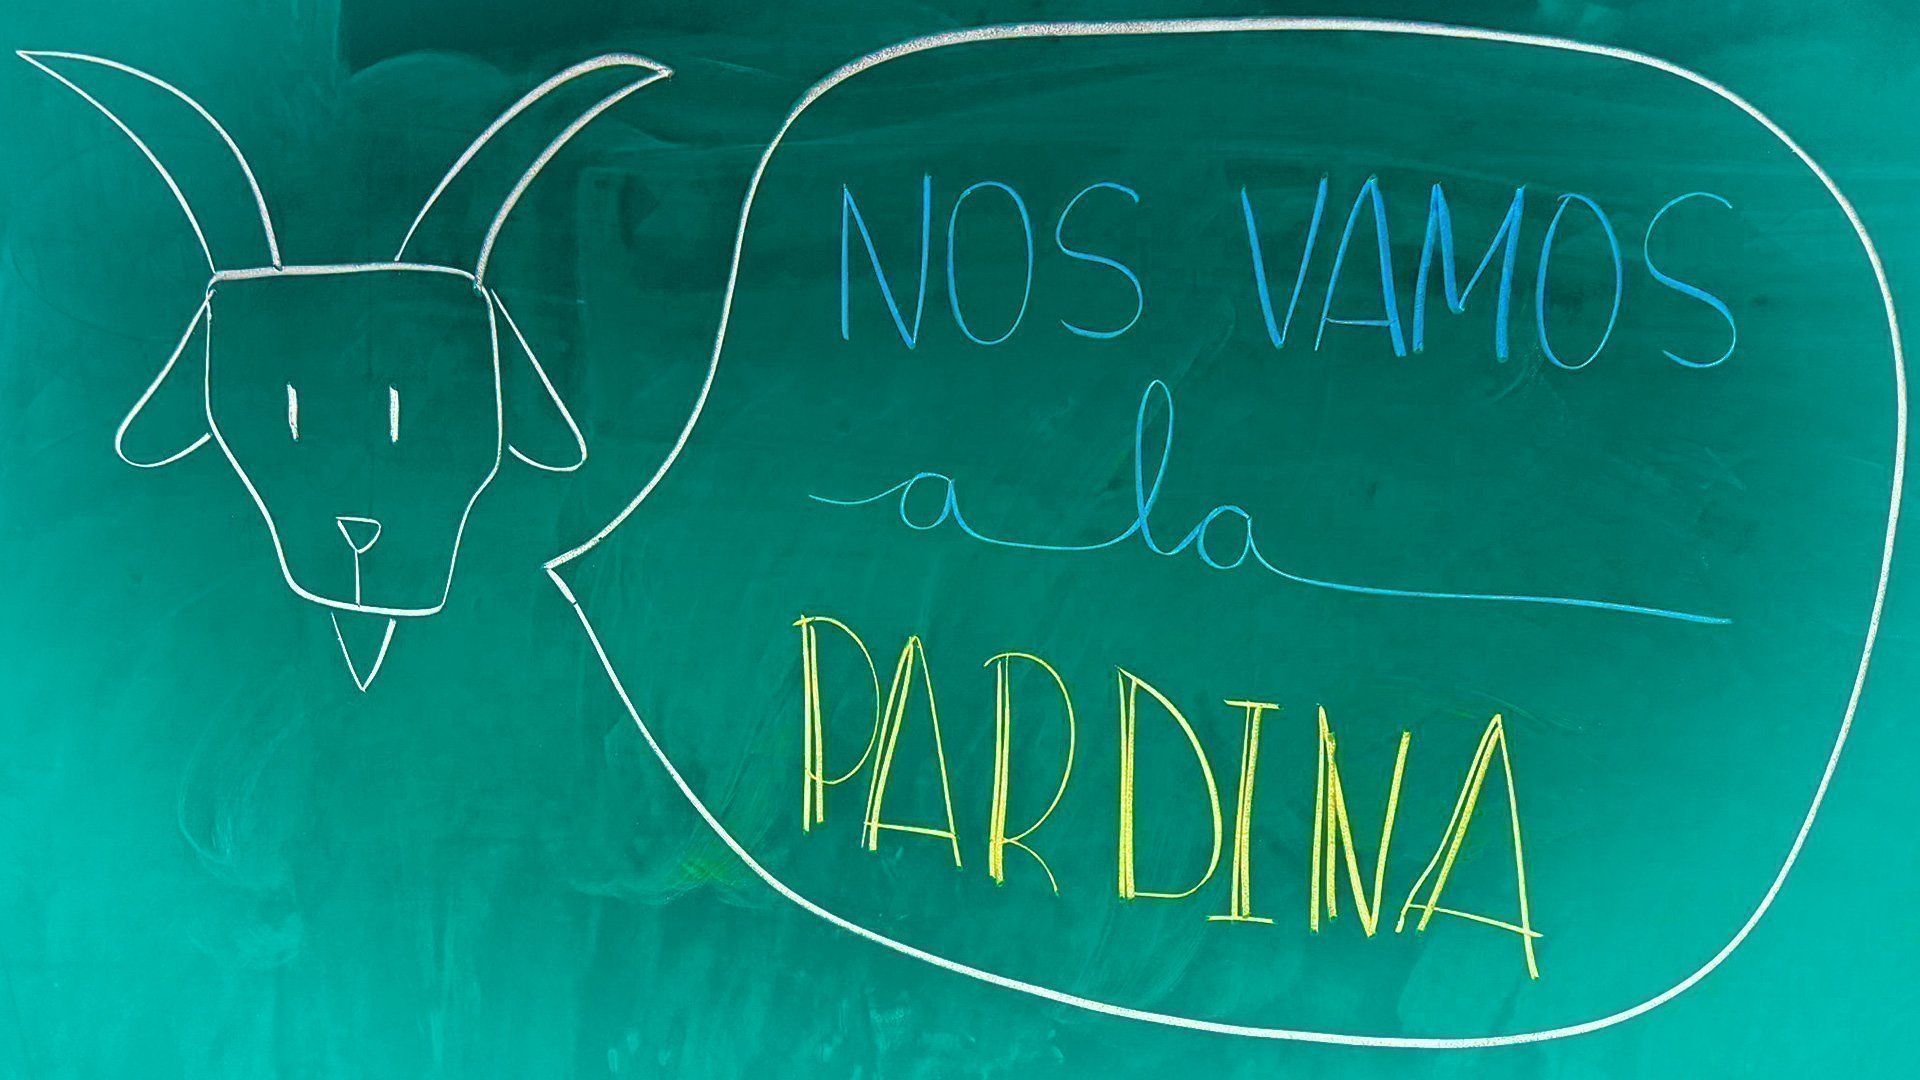 NOS VAMOS
a la
PARDINA